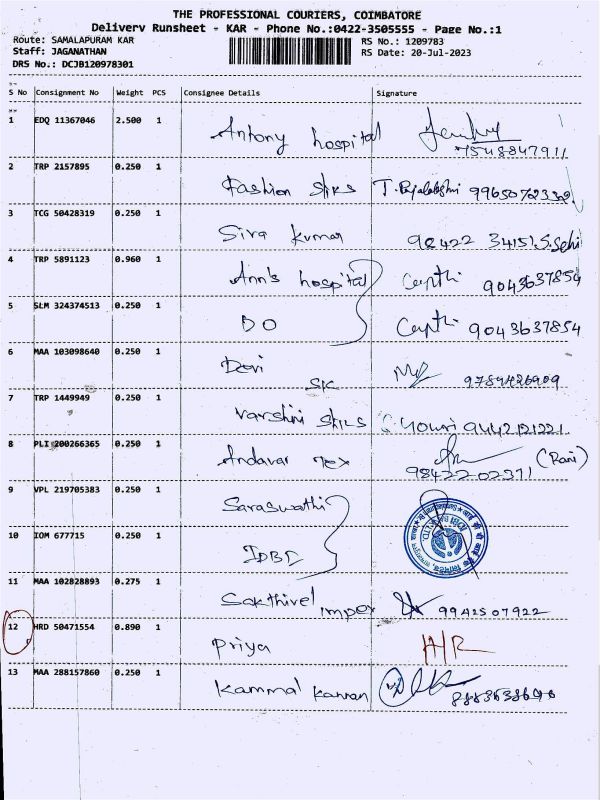 THE PROFESSIONAL COURIERS, COIMBATORE
Delivery Runsheet - KAR - Phone No.:0422-3505555 - Page No.:1
Route: SAMALAPURAM KAR RS No.: 1209783
Staff: JAGANATHAN RS Date: 20-Jul-2023
DRS No.: DCJB120978301
S No Consignment No Weight PCS Consignee Details Signature
1 EDQ 11367046 2.500 1 Antony hospital
7548847911
2 TRP 2157895 0.250 1 Fashion
3 TCG 50428319 0.250 1 Siva kumar
4 TRP 5891123 0.960 1 Ann's hospital 9043637854
5 SLM 324374513 0.250 1 DO 9043637854
6 MAA 103098640 0.250 1 Devi
SK 9789426909
7 TRP 1449949 0.250 1 Varshini 9442121221
8 PLI 200266365 0.250 1 Andavar Tex (Rani)
9842202371
9 VPL 219705383 0.250 1 Saraswathi
10 IOM 677715 0.250 1 IDBI
11 MAA 102828893 0.275 1 Sakthivel impex 9942507922
12 HRD 50471554 0.890 1 Priya H/R
13 MAA 288157860 0.250 1 Kammal Kannan